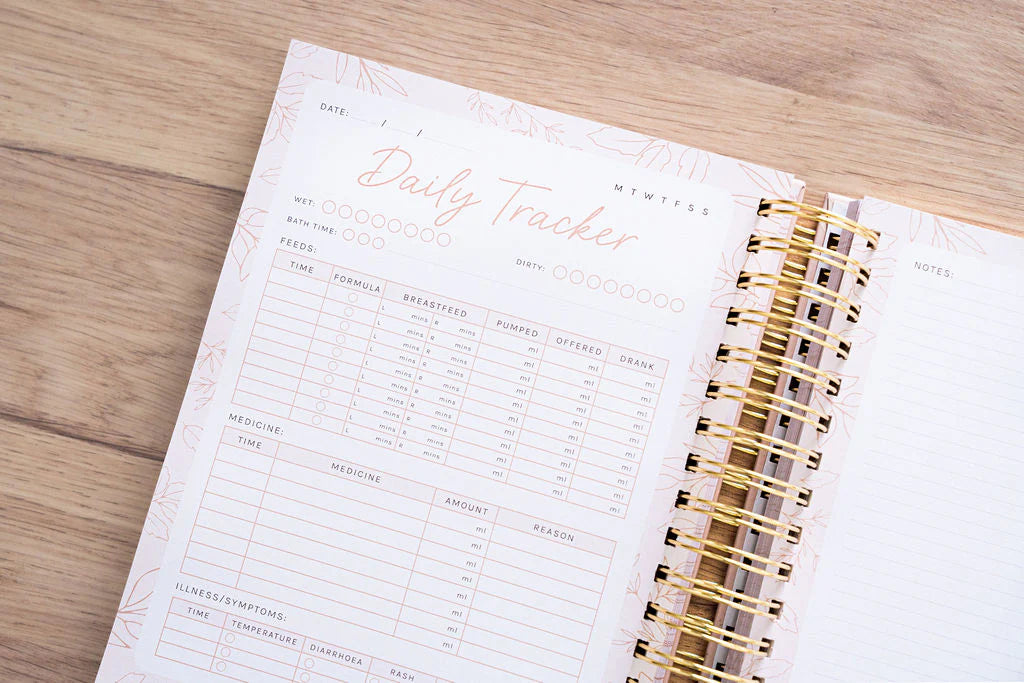 DATE: / /
M T W T F S S
Daily Tracker
WET:
BATH TIME:
DIRTY:
FEEDS:
TIME FORMULA BREASTFEED PUMPED OFFERED DRANK
L mins R mins ml ml ml
L mins R mins ml ml ml
L mins R mins ml ml ml
L mins R mins ml ml ml
L mins R mins ml ml ml
L mins R mins ml ml ml
L mins R mins ml ml ml
L mins R mins ml ml ml
L mins R mins ml ml ml
L mins R mins ml ml ml
MEDICINE:
TIME MEDICINE AMOUNT REASON
ml
ml
ml
ml
ml
ml
ml
ml
ILLNESS/SYMPTOMS:
TIME TEMPERATURE DIARRHOEA RASH
NOTES: